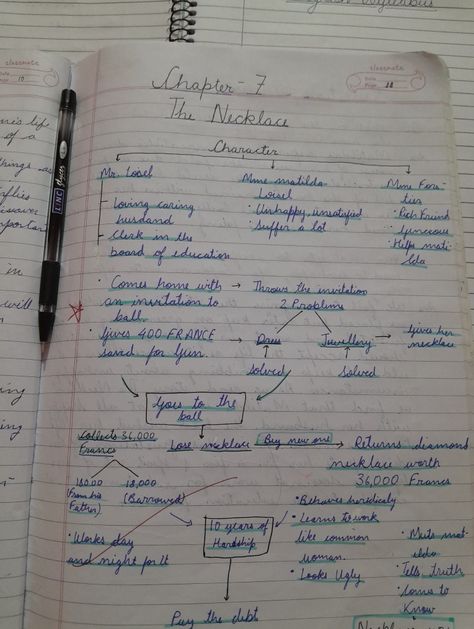 classmate
Date
Page 10
classmate
Date
Page
Chapter - 7
The Necklace
Character
Mr. Loisel
Loving caring
husband
Clerk in the
board of education
Mme matilda
Loisel
Unhappy, unsatisfied
suffer a lot
Mme Fores-
tier
Rich Friend
Helps mati-
lda
Comes home with → Throws the invitation
an invitation to
ball.
2 Problems
Gives 400 FRANCE → Dress
saved for Gun.
Jwellery → Gives her
necklace
Solved
Solved
Goes to the
ball
Collects 36,000
Francs
Lose necklace
Buy new one → Returns diamond
necklace worth
36,000 Francs
18000
(From his
Father)
18,000
(Borrowed)
Works day
and night for it
10 years of
Hardship
Behaves
Learns to work
like common
woman.
Looks Ugly
Meets mat-
ilda
Tells truth
Comes to
Know
Pay the debt
LINC